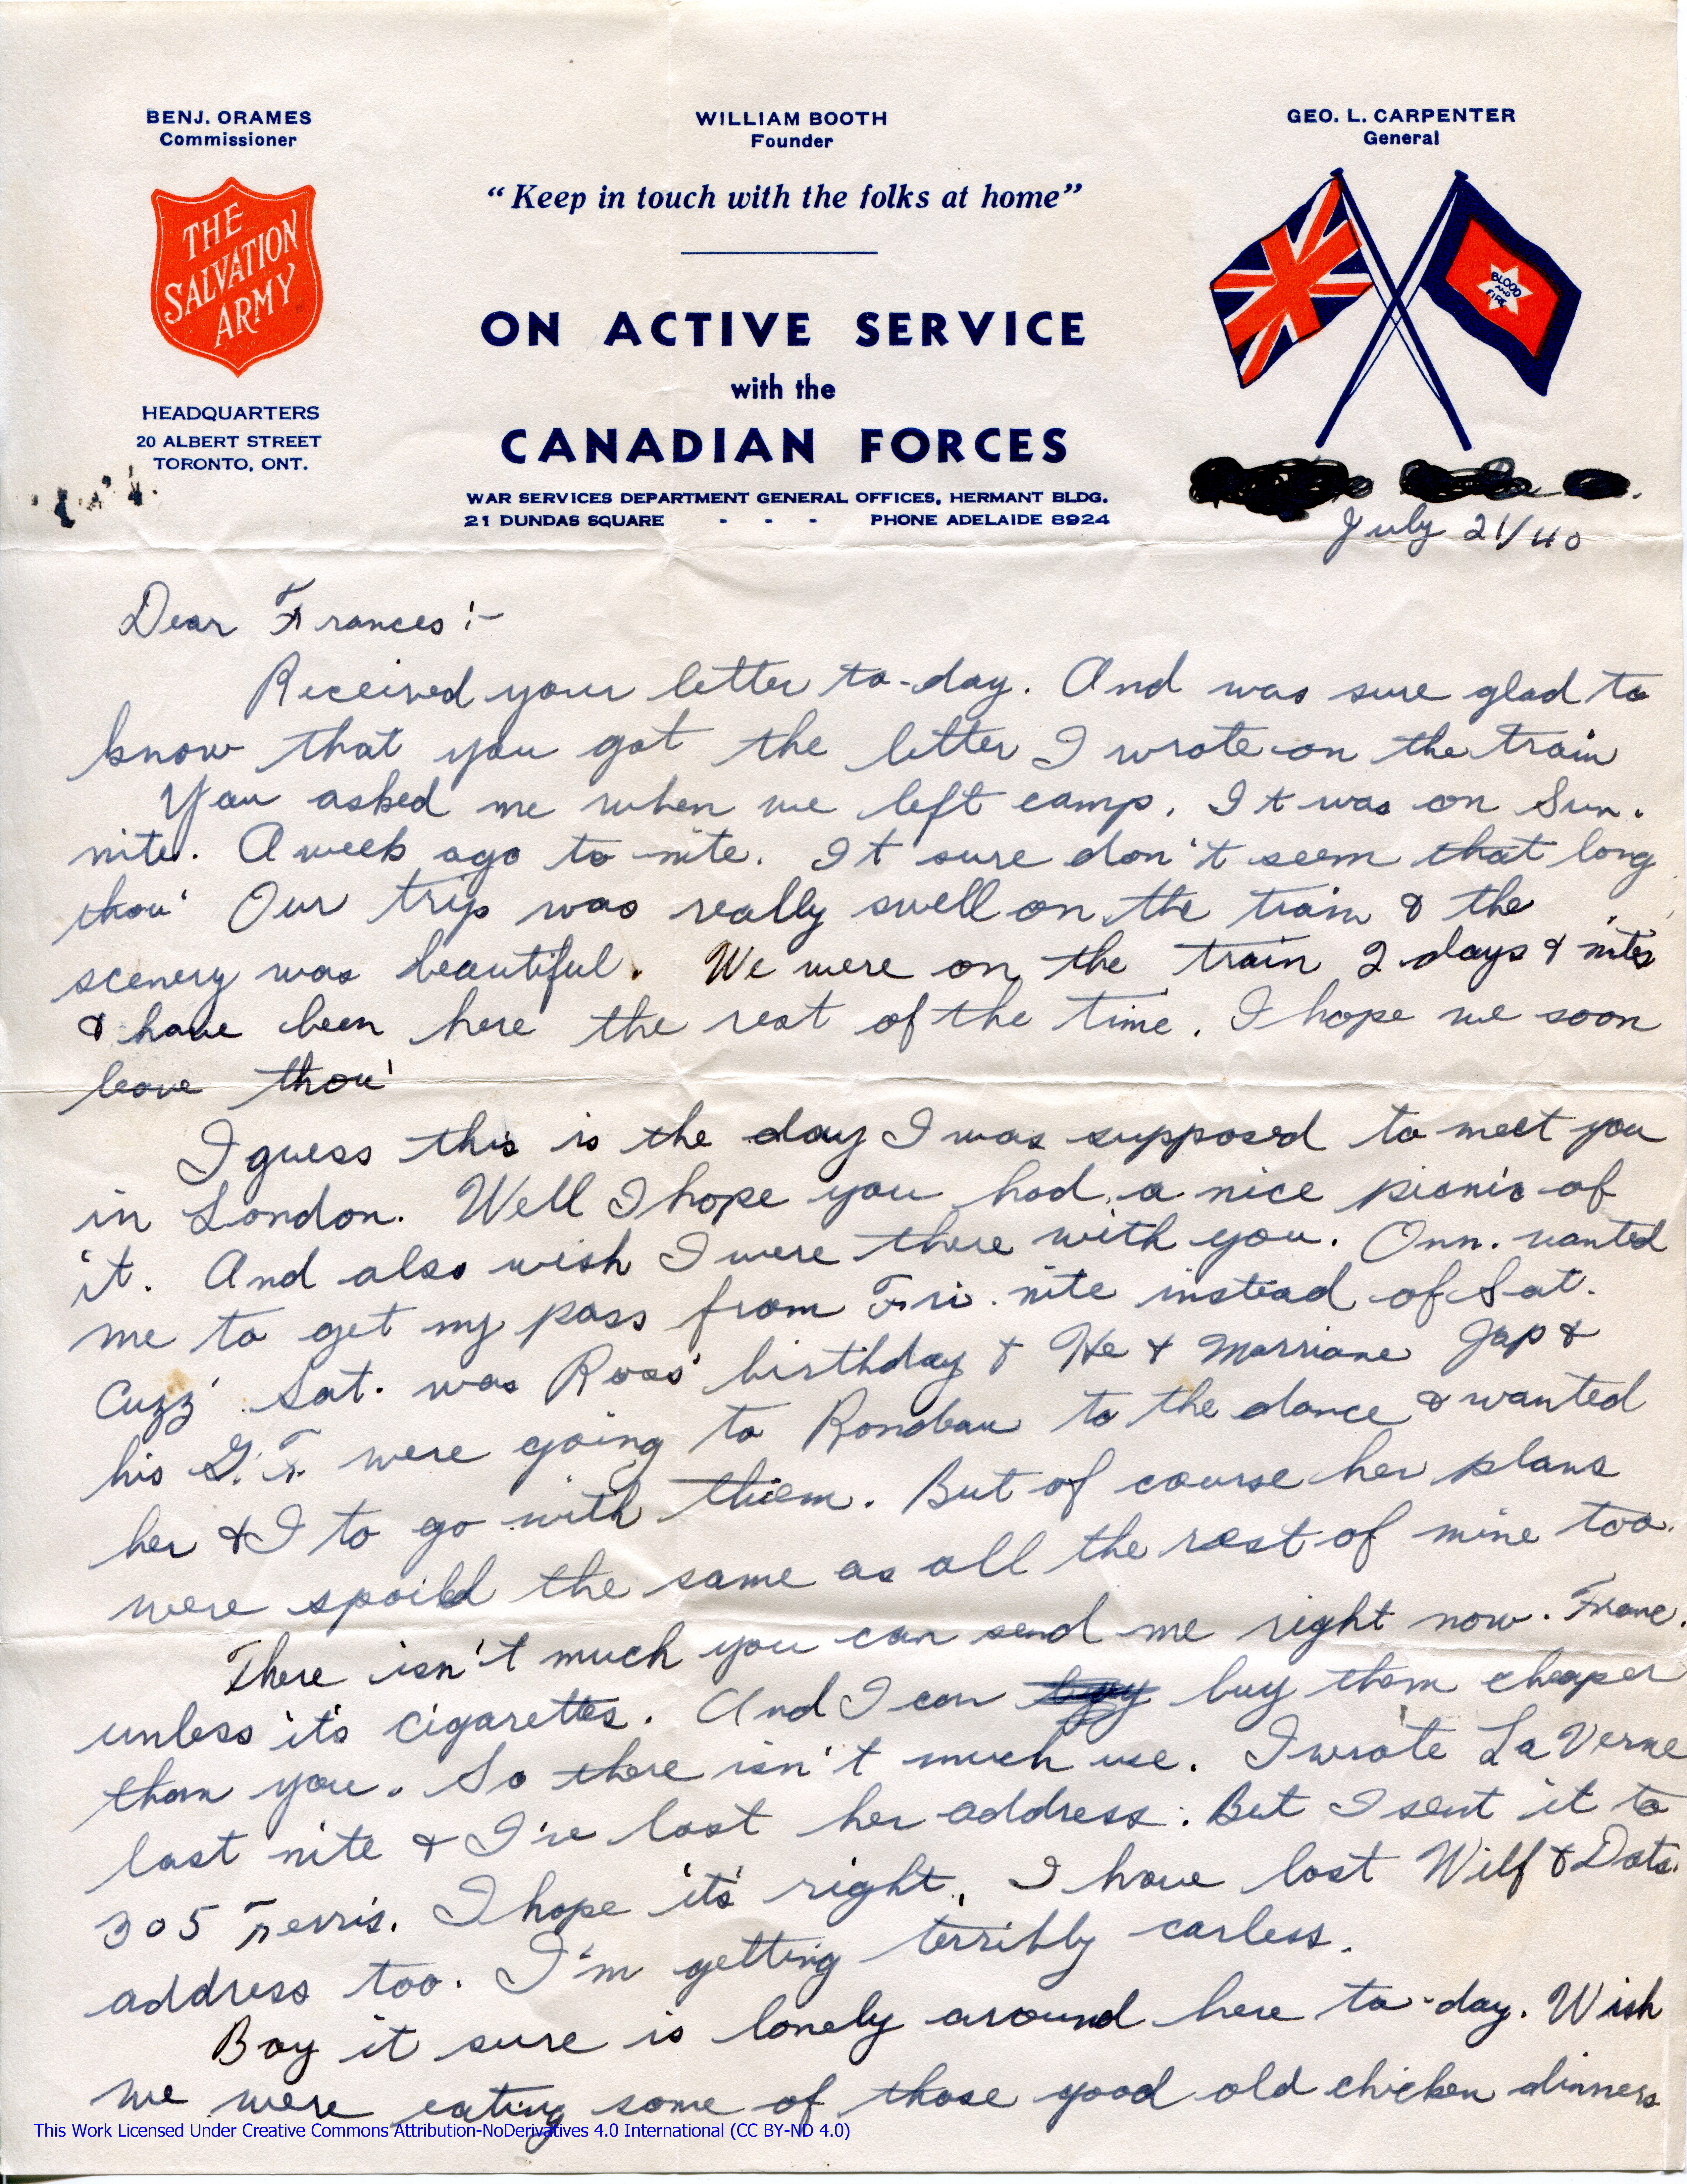 BENJ. ORAMES
Commissioner
WILLIAM BOOTH
Founder
GEO. L. CARPENTER
General
"Keep in touch with the folks at home"
THE
SALVATION
ARMY
BLOOD
AND
FIRE
ON ACTIVE SERVICE
with the
CANADIAN FORCES
HEADQUARTERS
20 ALBERT STREET
TORONTO, ONT.
WAR SERVICES DEPARTMENT GENERAL OFFICES, HERMANT BLDG.
21 DUNDAS SQUARE - - - PHONE ADELAIDE 8924
July 21/40
Dear Frances:-
Received your letter to-day. And was sure glad to
know that you got the letter I wrote on the train
You asked me when we left camp. It was on Sun.
nite. A week ago to nite. It sure don't seem that long
thou' Our trip was really swell on the train & the
scenery was beautiful. We were on the train 2 days & nites
& have been here the rest of the time. I hope we soon
leave thou'
I guess this is the day I was supposed to meet you
in London. Well I hope you had a nice picnic of
it. And also wish I were there with you. Onn. wanted
me to get my pass from Fri. nite instead of Sat.
Cuzz' Sat. was Ross' birthday & He & Marriane Jap &
his G.F. were going to Rondeau to the dance & wanted
her & I to go with them. But of course her plans
were spoild the same as all the rest of mine too.
There isn't much you can send me right now. Franc.
unless it's cigarettes. And I can buy them cheaper
than you. So there isn't much use. I wrote LaVerne
last nite & I've lost her address. But I sent it to
305 Ferris. I hope it's right. I have lost Wilf & Dots.
address too. I'm getting terribly carless.
Boy it sure is lonely around here to-day. Wish
we were eating some of those good old chicken dinners
This Work Licensed Under Creative Commons Attribution-NoDerivatives 4.0 International (CC BY-ND 4.0)